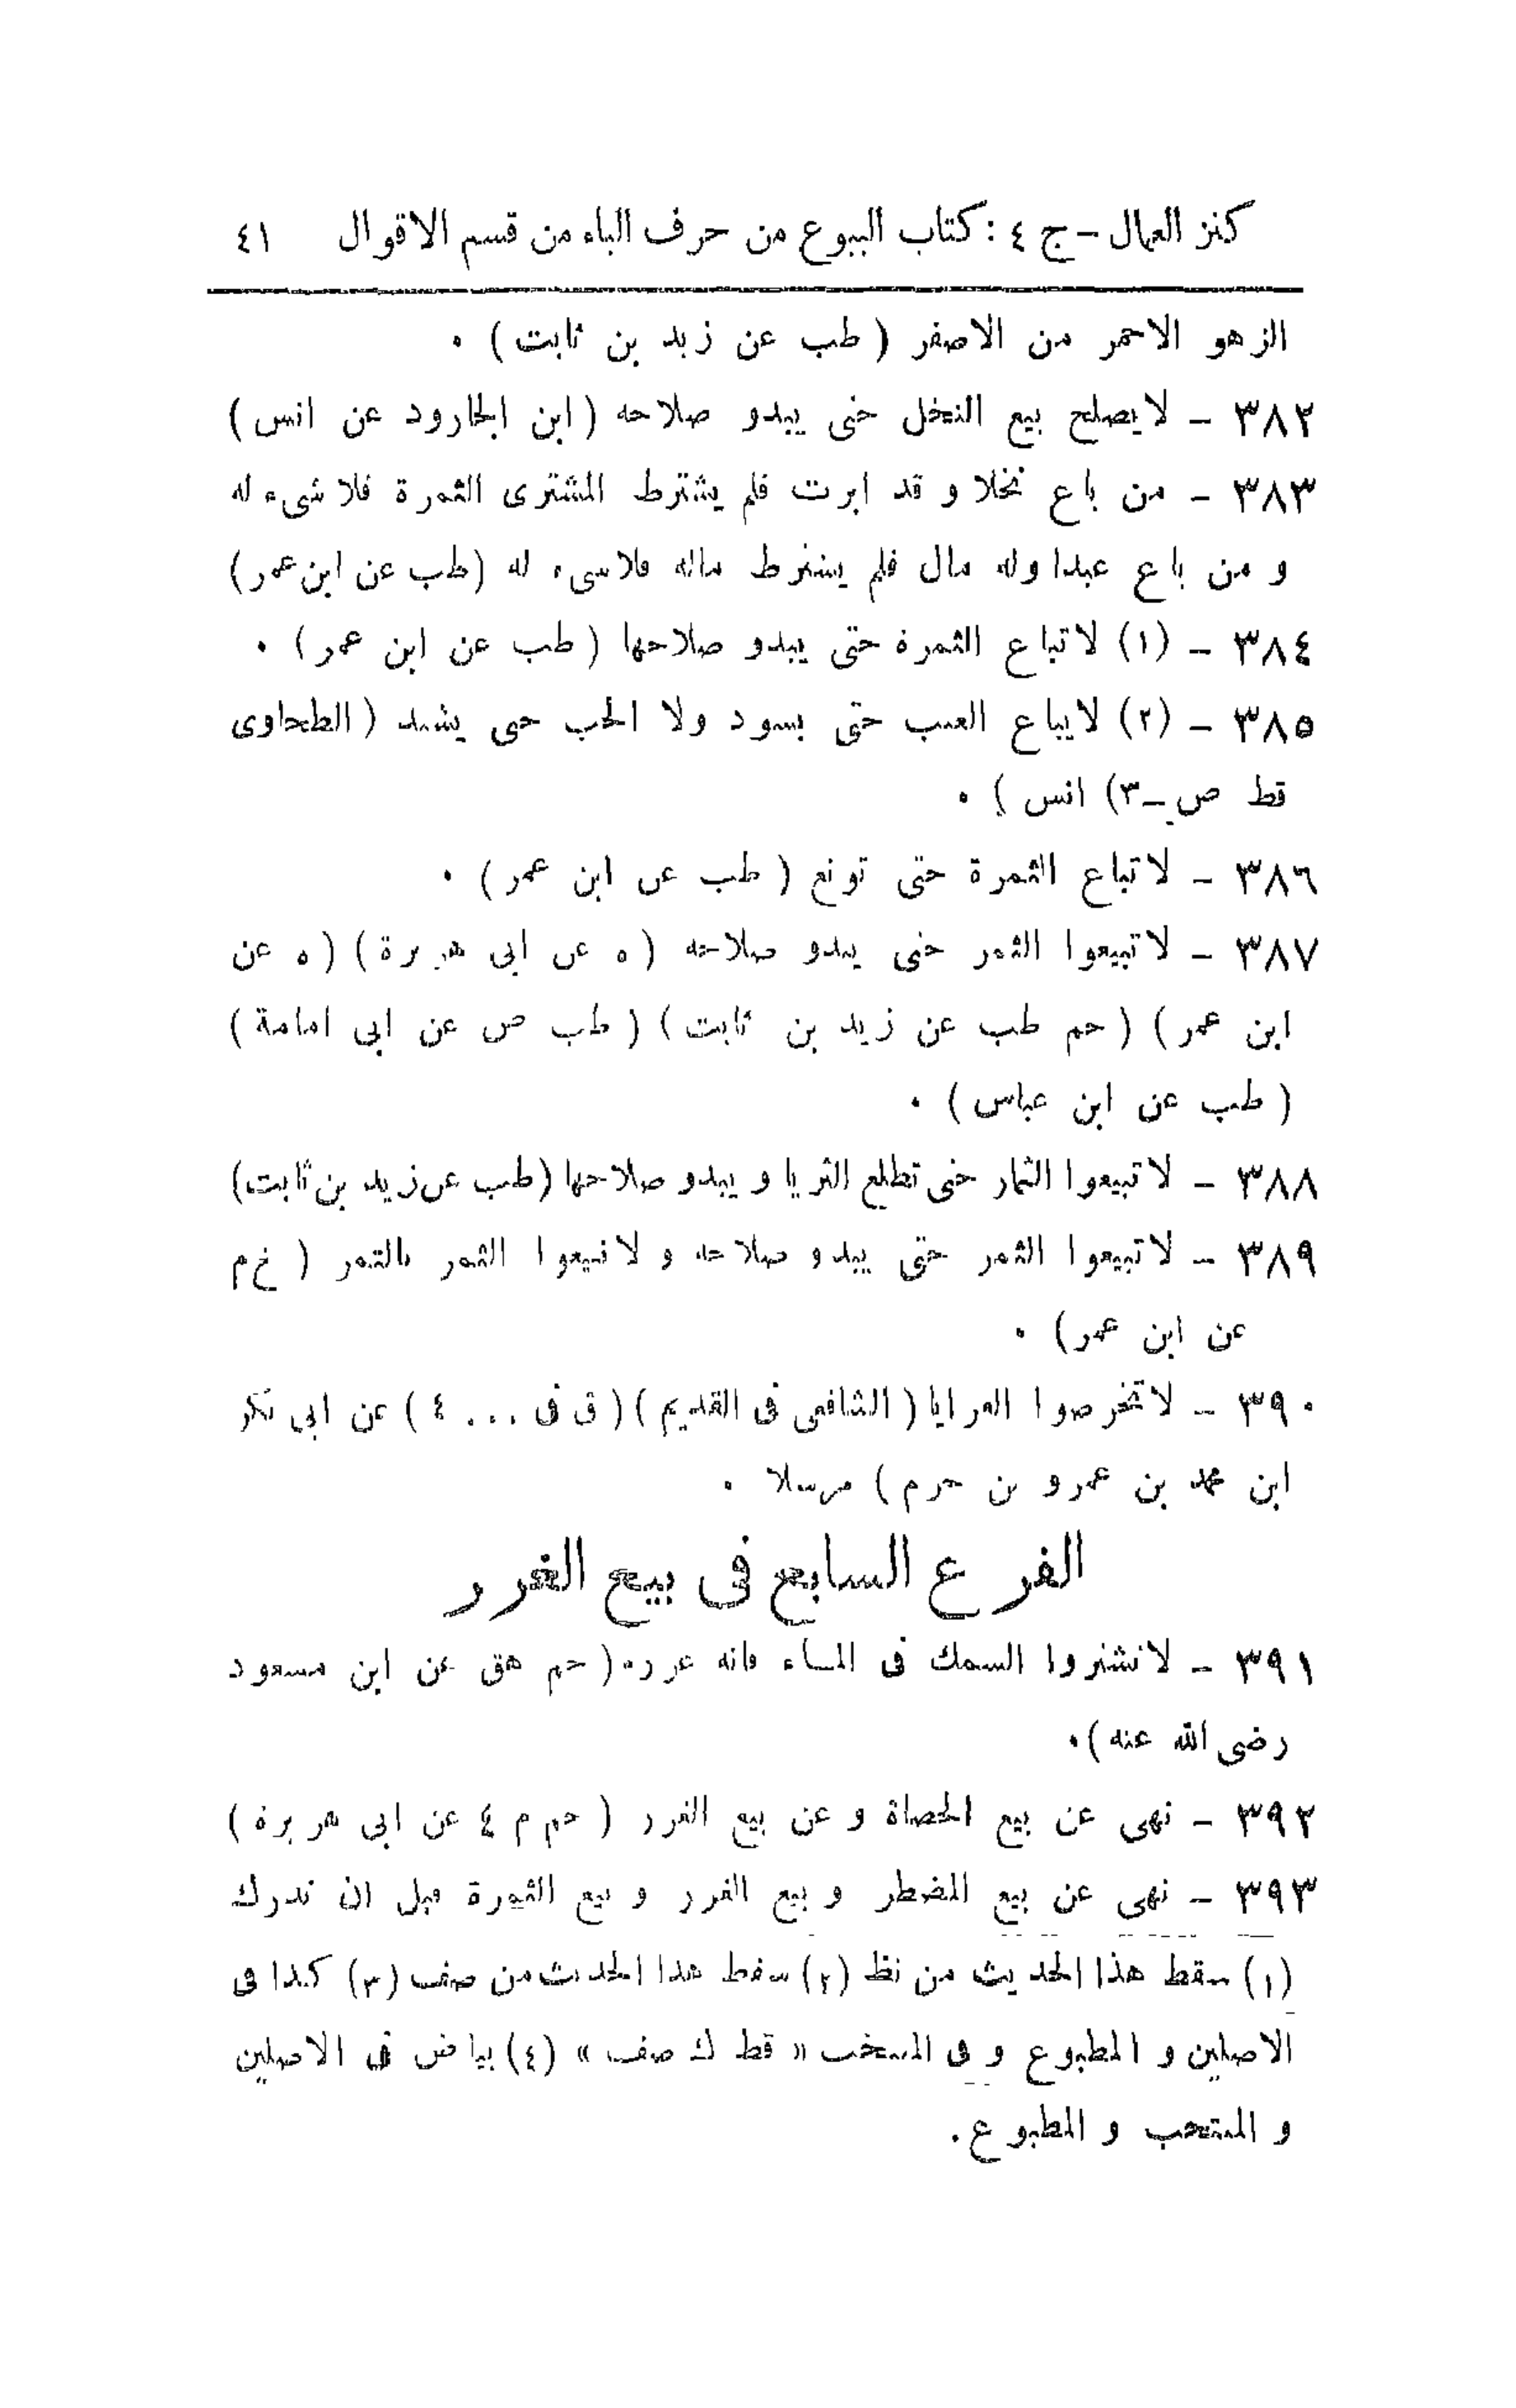 كنز العمال - ج ٤ : كتاب البيوع من حرف الباء من قسم الاقوال ٤١
الزهو الاحمر من الاصفر ( طب عن زيد بن ثابت ) .
٣٨٢ - لا يصلح بيع النخل حتى يبدو صلاحه ( ابن الجارود عن انس )
٣٨٣ - من باع نخلا و قد ابرت فلم يشترط المشترى الثمرة فلا شىء له
و من باع عبدا وله مال فلم يشترط ماله فلا شىء له (طب عن ابن عمر)
٣٨٤ - (١) لا تباع الثمرة حتى يبدو صلاحها ( طب عن ابن عمر ) .
٣٨٥ - (٢) لا يباع العنب حتى يسود ولا الحب حتى يشتد ( الطحاوى
قط ص-٣) انس ) .
٣٨٦ - لا تباع الثمرة حتى تونع ( طب عن ابن عمر ) .
٣٨٧ - لا تبيعوا الثمر حتى يبدو صلاحه ( ه عن ابى هريرة ) ( ه عن
ابن عمر ) ( حم طب عن زيد بن ثابت ) ( طب ص عن ابى امامة )
( طب عن ابن عباس ) .
٣٨٨ - لا تبيعوا الثمار حتى تطلع الثريا و يبدو صلاحها (طب عن زيد بن ثابت)
٣٨٩ - لا تبيعوا الثمر حتى يبدو صلاحه و لا تبيعوا الثمر بالتمر ( خ م
عن ابن عمر) .
٣٩٠ - لا تخرصوا العرايا ( الشافعى فى القديم ) ( ق فى ... ٤ ) عن ابى بكر
ابن محمد بن عمرو بن حزم ) مرسلا .
الفرع السابع فى بيع الغرر
٣٩١ - لا تشتروا السمك فى الماء فانه غرر. ( حم هق عن ابن مسعود
رضى الله عنه ).
٣٩٢ - نهى عن بيع الحصاة و عن بيع الغرر ( حم م ٤ عن ابى هريرة )
٣٩٣ - نهى عن بيع المضطر و بيع الغرر و بيع الثمرة قبل ان تدرك
(١) سقط هذا الحديث من نظ (٢) سقط هذا الحديث من صف (٣) كذا فى
الاصلين و المطبوع و فى المنتخب « قط ك صف » (٤) بياض فى الاصلين
و المنتخب و المطبوع.